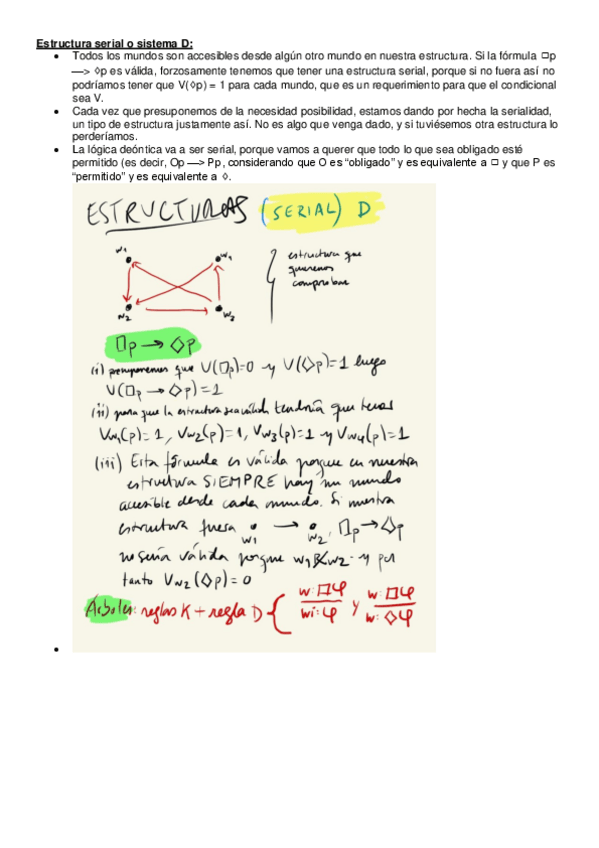 Estructura serial o sistema D:
• Todos los mundos son accesibles desde algún otro mundo en nuestra estructura. Si la fórmula □p
—> ◊p es válida, forzosamente tenemos que tener una estructura serial, porque si no fuera así no
podríamos tener que V(◊p) = 1 para cada mundo, que es un requerimiento para que el condicional
sea V.
• Cada vez que presuponemos de la necesidad posibilidad, estamos dando por hecha la serialidad,
un tipo de estructura justamente así. No es algo que venga dado, y si tuviésemos otra estructura lo
perderíamos.
• La lógica deóntica va a ser serial, porque vamos a querer que todo lo que sea obligado esté
permitido (es decir, Op —> Pp, considerando que O es “obligado” y es equivalente a □ y que P es
“permitido” y es equivalente a ◊.
ESTRUCTURAS (SERIAL) D
w1 w1
estructura que
queremos
comprobar
w2 w2
□p → ◊p
(i) presuponemos que V(□p)=0 y V(◊p)=1 luego
V(□p → ◊p)=1
(ii) para que la estructura sea válida tendría que tener
Vw1(p)=1, Vw2(p)=1, Vw3(p)=1 y Vw4(p)=1
(iii) Esta fórmula es válida porque en nuestra
estructura SIEMPRE hay un mundo
accesible desde cada mundo. Si nuestra
estructura fuera • → •, □p → ◊p
w1 w2
no sería válida porque w1 R w2 y por
tanto Vw2(◊p)=0
Árboles: reglas K + regla D { w: □φ / wi: φ y w: □φ / w: ◊φ
•